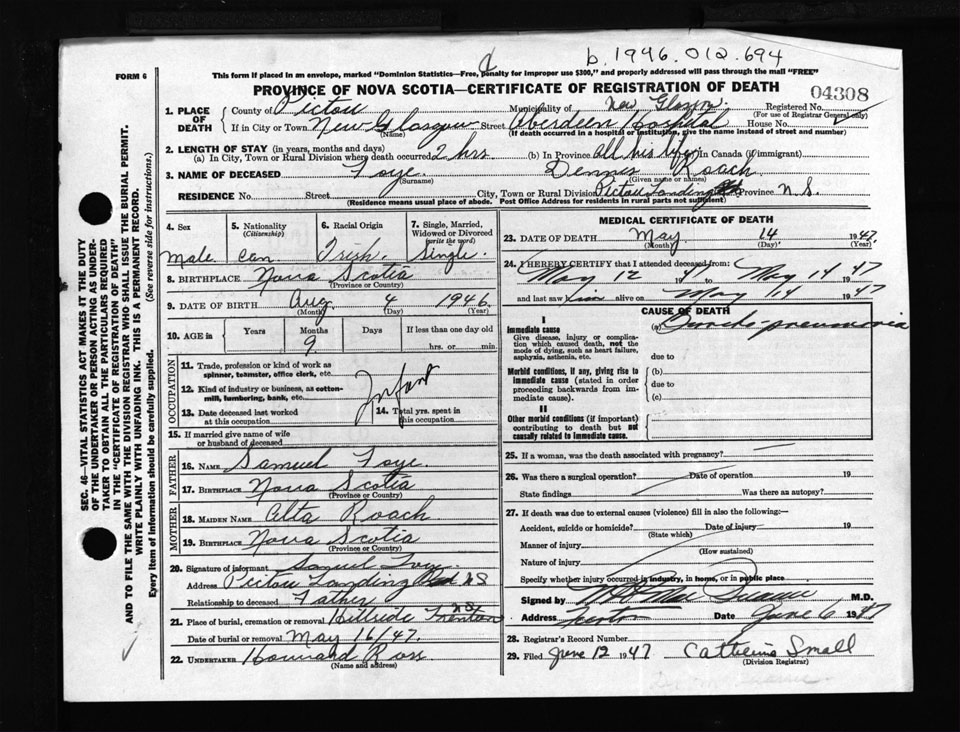 b. 1946.012.694
FORM 6
This form if placed in an envelope, marked "Dominion Statistics—Free, penalty for improper use $300," and properly addressed will pass through the mail "FREE"
PROVINCE OF NOVA SCOTIA—CERTIFICATE OF REGISTRATION OF DEATH
04308
1. PLACE OF DEATH
County of Pictou Municipality of New Glasgow Registered No.
(For use of Registrar General only)
If in City or Town New Glasgow Street Aberdeen Hospital House No.
(Name) (If death occurred in a hospital or institution, give the name instead of street and number)
2. LENGTH OF STAY (in years, months and days)
(a) In City, Town or Rural Division where death occurred 2 hrs (b) In Province all his life In Canada (if immigrant)
3. NAME OF DECEASED Foye Dennis Roach
(Surname) (Given name or names)
RESIDENCE No. Street City, Town or Rural Division Pictou Landing Province N.S.
(Residence means usual place of abode. Post Office Address for residents in rural parts not sufficient)
4. Sex 5. Nationality (Citizenship) 6. Racial Origin 7. Single, Married, Widowed or Divorced (write the word)
Male Can Irish. Single.
8. BIRTHPLACE Nova Scotia
(Province or Country)
9. DATE OF BIRTH Aug 4 1946
(Month) (Day) (Year)
10. AGE in Years Months Days If less than one day old
9 hrs. or min.
OCCUPATION
11. Trade, profession or kind of work as spinner, teamster, office clerk, etc.
12. Kind of industry or business, as cotton-mill, lumbering, bank, etc.
Infant
13. Date deceased last worked at this occupation
14. Total yrs. spent in this occupation
15. If married give name of wife or husband of deceased
FATHER
16. NAME Samuel Foye.
17. BIRTHPLACE Nova Scotia
(Province or Country)
MOTHER
18. MAIDEN NAME Alta Roach
19. BIRTHPLACE Nova Scotia
(Province or Country)
20. Signature of informant Samuel Foye
Address Pictou Landing NS
Relationship to deceased Father
21. Place of burial, cremation or removal Hillside Trenton NS
Date of burial or removal May 16/47.
22. UNDERTAKER Howard Ross
(Name and address)
MEDICAL CERTIFICATE OF DEATH
23. DATE OF DEATH May 14 1947
(Month) (Day) (Year)
24. I HEREBY CERTIFY that I attended deceased from:
May 12 1947 to May 14 1947
and last saw him alive on May 14 1947
CAUSE OF DEATH
I
Immediate cause (a) Broncho-pneumonia
Give disease, injury or complication which caused death, not the mode of dying, such as heart failure, asphyxia, asthenia, etc.
due to
Morbid conditions, if any, giving rise to immediate cause (stated in order proceeding backwards from immediate cause).
(b)
due to
(c)
II
Other morbid conditions (if important) contributing to death but not causally related to immediate cause.
25. If a woman, was the death associated with pregnancy?
26. Was there a surgical operation? Date of operation 19
State findings Was there an autopsy?
27. If death was due to external causes (violence) fill in also the following:—
Accident, suicide or homicide? Date of injury 19
(State which)
Manner of injury
(How sustained)
Nature of injury
Specify whether injury occurred in industry, in home, or in public place
Signed by M.D.
Address Date June 6, 1947
28. Registrar's Record Number
29. Filed June 12 1947 Catherine Small
(Division Registrar)
SEC. 46—VITAL STATISTICS ACT MAKES IT THE DUTY
OF THE UNDERTAKER OR PERSON ACTING AS UNDER-
TAKER TO OBTAIN ALL THE PARTICULARS REQUIRED
IN THE "CERTIFICATE OF REGISTRATION OF DEATH"
AND TO FILE THE SAME WITH THE DIVISION REGISTRAR WHO SHALL ISSUE THE BURIAL PERMIT.
WRITE PLAINLY WITH UNFADING INK. THIS IS A PERMANENT RECORD.
Every item of information should be carefully supplied. (See reverse side for instructions.)